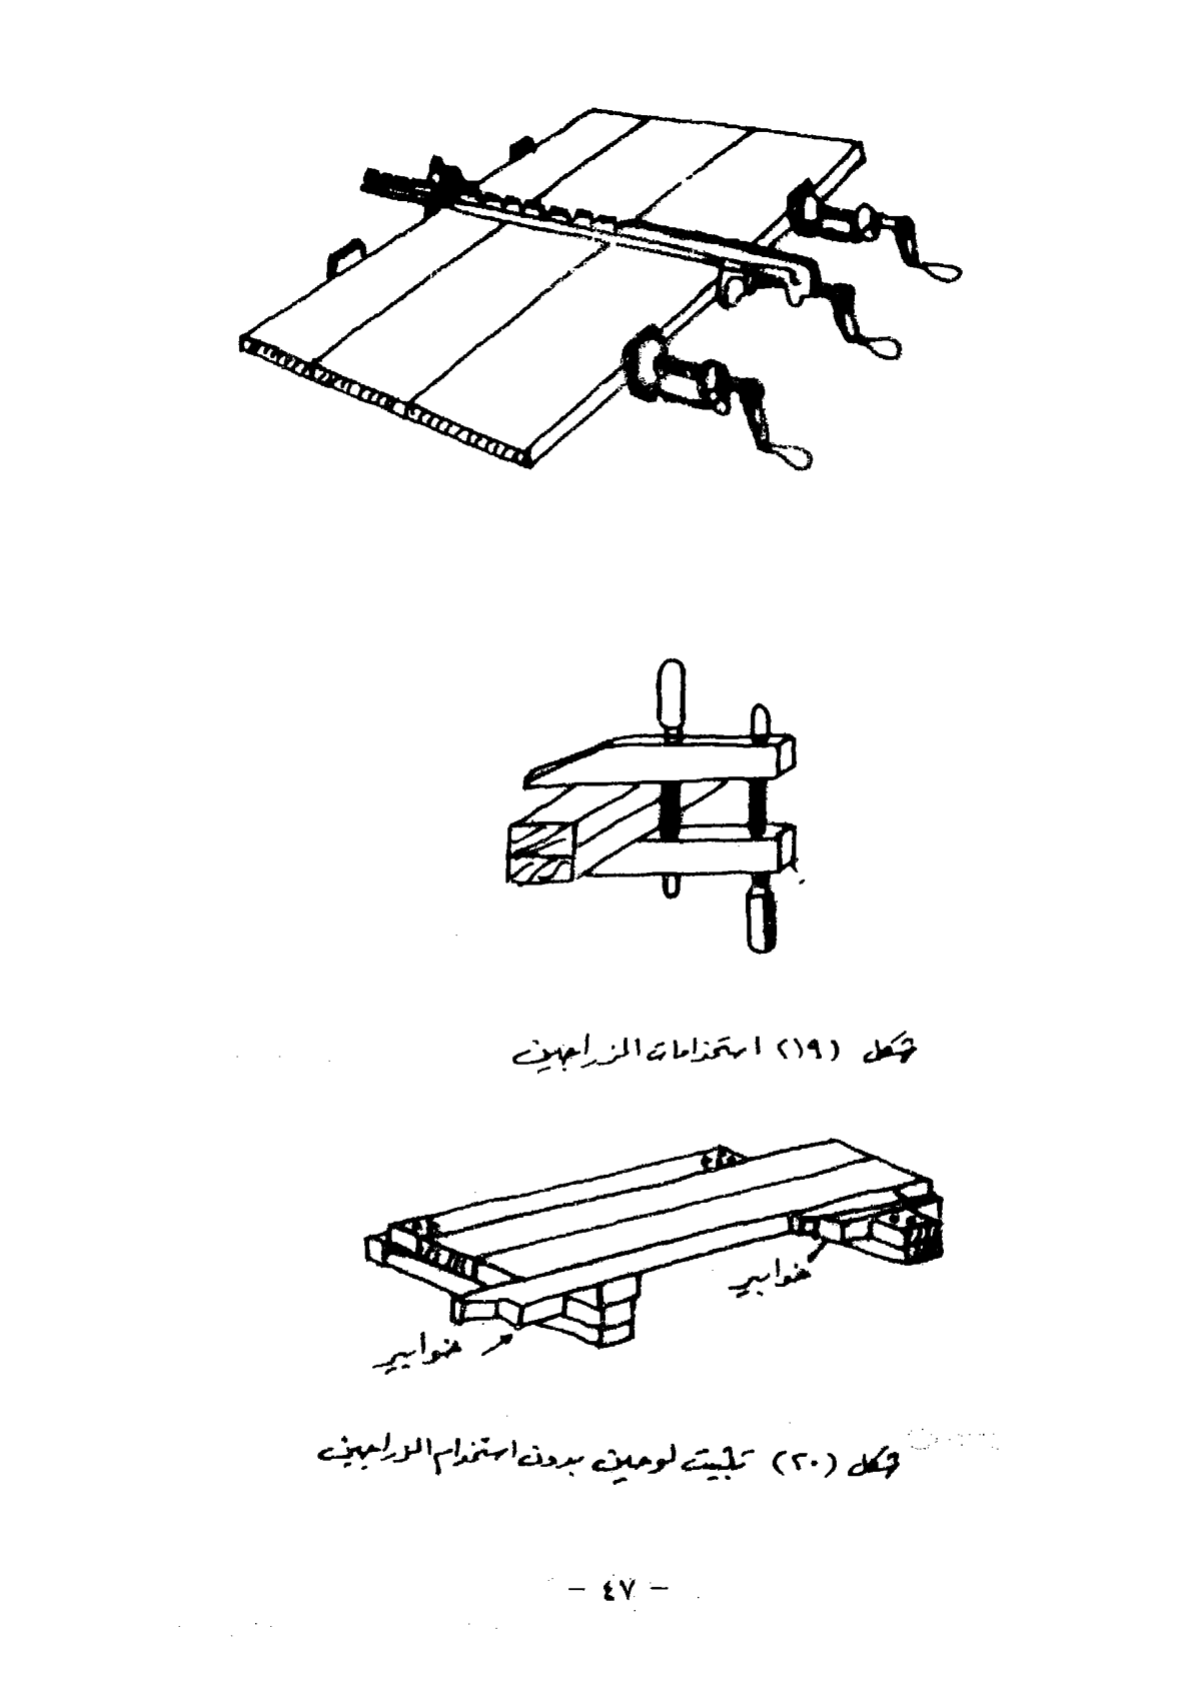 شكل (١٩) استخدامات الزراجين
خوابير
خوابير
شكل (٢٠) تثبيت لوحين بدون استخدام الزراجين
- ٤٧ -